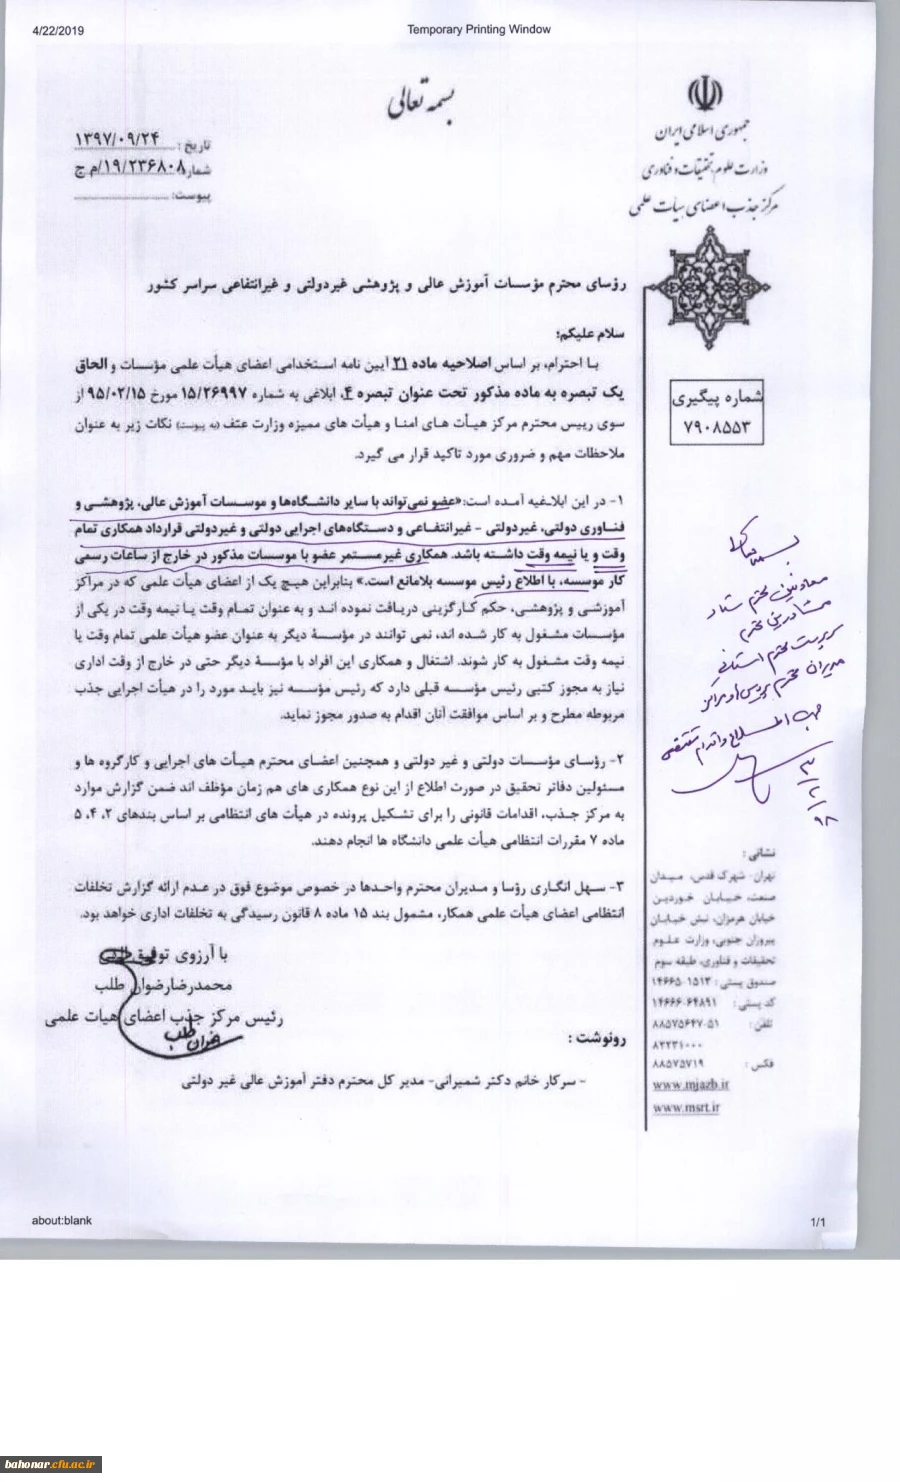 4/22/2019
Temporary Printing Window
بسمه تعالی
جمهوری اسلامی ایران
وزارت علوم، تحقیقات و فناوری
مرکز جذب اعضای هیات علمی
تاریخ: ۱۳۹۷/۰۹/۲۴
شماره: ۱۹/۲۳۶۸۰۸/م ج
پیوست:
رؤسای محترم مؤسسات آموزش عالی و پژوهشی غیردولتی و غیرانتفاعی سراسر کشور
شماره پیگیری
۷۹۰۸۵۵۳
سلام علیکم؛
با احترام، بر اساس اصلاحیه ماده ۲۱ آیین نامه استخدامی اعضای هیأت علمی مؤسسات و الحاق
یک تبصره به ماده مذکور تحت عنوان تبصره ۴، ابلاغی به شماره ۱۵/۲۶۹۹۷ مورخ ۹۵/۰۲/۱۵ از
سوی رییس محترم مرکز هیأت های امنا و هیأت های ممیزه وزارت عتف (به پیوست) نکات زیر به عنوان
ملاحظات مهم و ضروری مورد تاکید قرار می گیرد.
۱- در این ابلاغیه آمده است: «عضو نمی‌تواند با سایر دانشگاه‌ها و موسسات آموزش عالی، پژوهشی و
فناوری دولتی، غیردولتی - غیرانتفاعی و دستگاه‌های اجرایی دولتی و غیردولتی قرارداد همکاری تمام
وقت و یا نیمه وقت داشته باشد. همکاری غیرمستمر عضو با موسسات مذکور در خارج از ساعات رسمی
کار موسسه، با اطلاع رئیس موسسه بلامانع است.» بنابراین هیچ یک از اعضای هیأت علمی که در مراکز
آموزشی و پژوهشی، حکم کارگزینی دریافت نموده اند و به عنوان تمام وقت یا نیمه وقت در یکی از
مؤسسات مشغول به کار شده اند، نمی توانند در مؤسسهٔ دیگر به عنوان عضو هیأت علمی تمام وقت یا
نیمه وقت مشغول به کار شوند. اشتغال و همکاری این افراد با مؤسسهٔ دیگر حتی در خارج از وقت اداری
نیاز به مجوز کتبی رئیس مؤسسه قبلی دارد که رئیس مؤسسه نیز باید مورد را در هیأت اجرایی جذب
مربوطه مطرح و بر اساس موافقت آنان اقدام به صدور مجوز نماید.
۲- رؤسای مؤسسات دولتی و غیر دولتی و همچنین اعضای محترم هیأت های اجرایی و کارگروه ها و
مسئولین دفاتر تحقیق در صورت اطلاع از این نوع همکاری های هم زمان مؤظف اند ضمن گزارش موارد
به مرکز جذب، اقدامات قانونی را برای تشکیل پرونده در هیأت های انتظامی بر اساس بندهای ۲، ۴، ۵
ماده ۷ مقررات انتظامی هیأت علمی دانشگاه ها انجام دهند.
۳- سهل انگاری رؤسا و مدیران محترم واحدها در خصوص موضوع فوق در عدم ارائه گزارش تخلفات
انتظامی اعضای هیأت علمی همکار، مشمول بند ۱۵ ماده ۸ قانون رسیدگی به تخلفات اداری خواهد بود.
با آرزوی توفیق الهی
محمدرضا رضوان طلب
رئیس مرکز جذب اعضای هیات علمی
رونوشت :
- سرکار خانم دکتر شمیرانی- مدیر کل محترم دفتر آموزش عالی غیر دولتی
معاونین محترم ستاد
مشاورین محترم
سرپرست محترم استانی
مدیران محترم پردیس و مراکز
جهت اطلاع و اقدام مقتضی
۹۸/۲/۳
نشانی :
تهران- شهرک قدس، میدان
صنعت، خیابان خوردین
خیابان هرمزان، نبش خیابان
پیروزان جنوبی، وزارت علوم
تحقیقات و فناوری، طبقه سوم
صندوق پستی : ۱۵۱۳-۱۴۶۶۵
کد پستی : ۶۴۸۹۱-۱۴۶۶۶
تلفن : ۸۸۵۷۵۶۴۷-۵۱
۸۲۲۳۱۰۰۰
فکس : ۸۸۵۷۵۷۱۹
www.mjazb.ir
www.msrt.ir
about:blank
1/1
bahonar.cfu.ac.ir